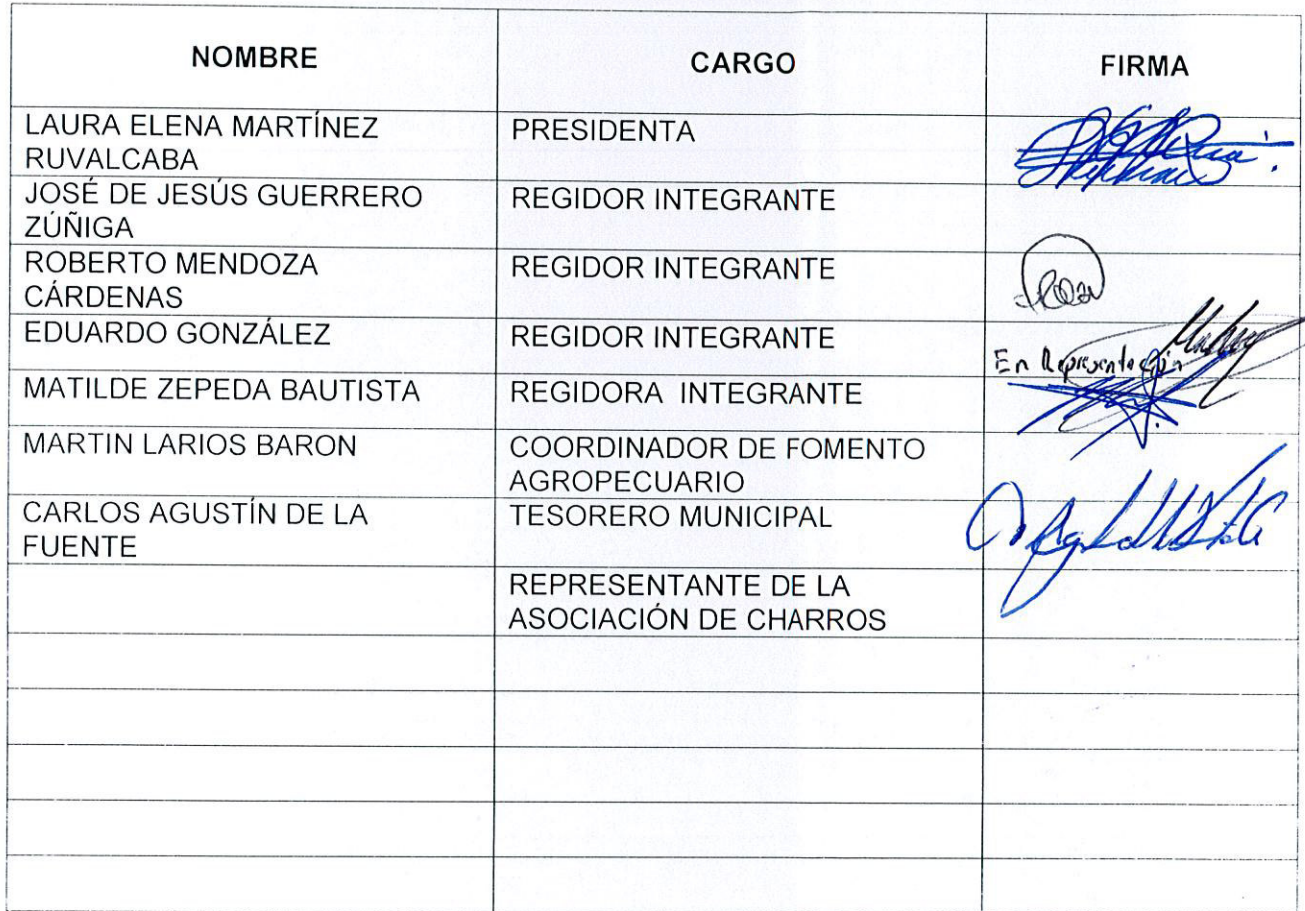 NOMBRE CARGO FIRMA
LAURA ELENA MARTÍNEZ PRESIDENTA
RUVALCABA
JOSÉ DE JESÚS GUERRERO REGIDOR INTEGRANTE
ZÚÑIGA
ROBERTO MENDOZA REGIDOR INTEGRANTE
CÁRDENAS
EDUARDO GONZÁLEZ REGIDOR INTEGRANTE
En Representación
MATILDE ZEPEDA BAUTISTA REGIDORA INTEGRANTE
MARTIN LARIOS BARON COORDINADOR DE FOMENTO
AGROPECUARIO
CARLOS AGUSTÍN DE LA TESORERO MUNICIPAL
FUENTE
REPRESENTANTE DE LA
ASOCIACIÓN DE CHARROS